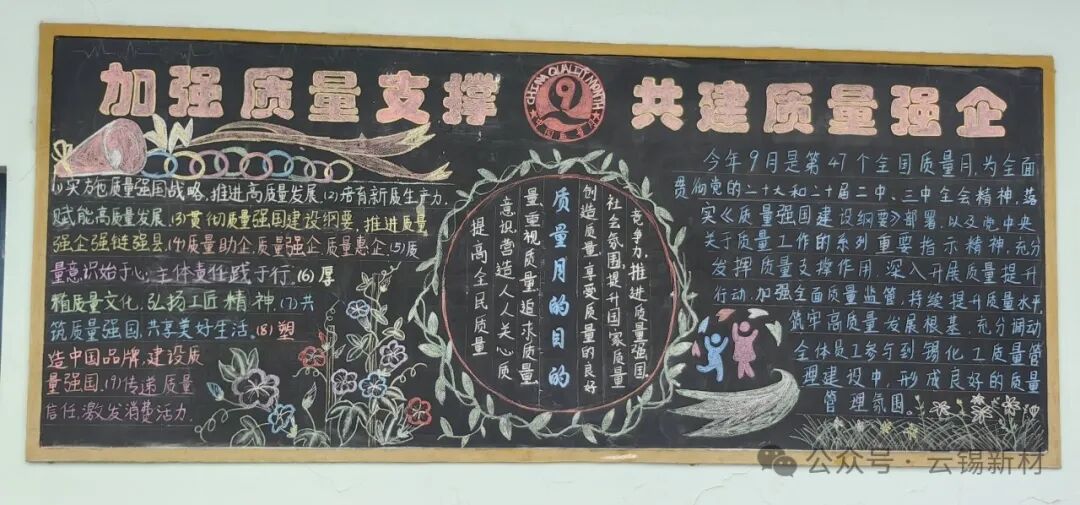 加强质量支撑
CHINA QUALITY MONTH
9
中国质量月
共建质量强企
(1)实施质量强国战略,推进高质量发展.(2)培育新质生产力,
赋能高质量发展.(3)贯彻质量强国建设纲要,推进质量
强企强链强县.(4)质量助企质量强企质量惠企.(5)质
量意识始于心,主体责任践于行.(6)厚
植质量文化,弘扬工匠精神.(7)共
筑质量强国,共享美好生活.(8)塑
造中国品牌,建设质
量强国.(9)传递质量
信任,激发消费活力.
质量月的目的
提高全民质量
意识,营造人人关心质
量、重视质量、追求质量、
创造质量、享受质量的良好
社会氛围,提升国家质量
竞争力,推进质量强国
今年9月是第47个全国质量月,为全面
贯彻党的二十大和二十届二中、三中全会精神,落
实《质量强国建设纲要》部署,以及党中央
关于质量工作的系列重要指示精神,充分
发挥质量支撑作用,深入开展质量提升
行动,加强全面质量监管,持续提升质量水平,
筑牢高质量发展根基,充分调动
全体员工参与到锡化工质量管
理建设中,形成良好的质量
管理氛围。
公众号·云锡新材